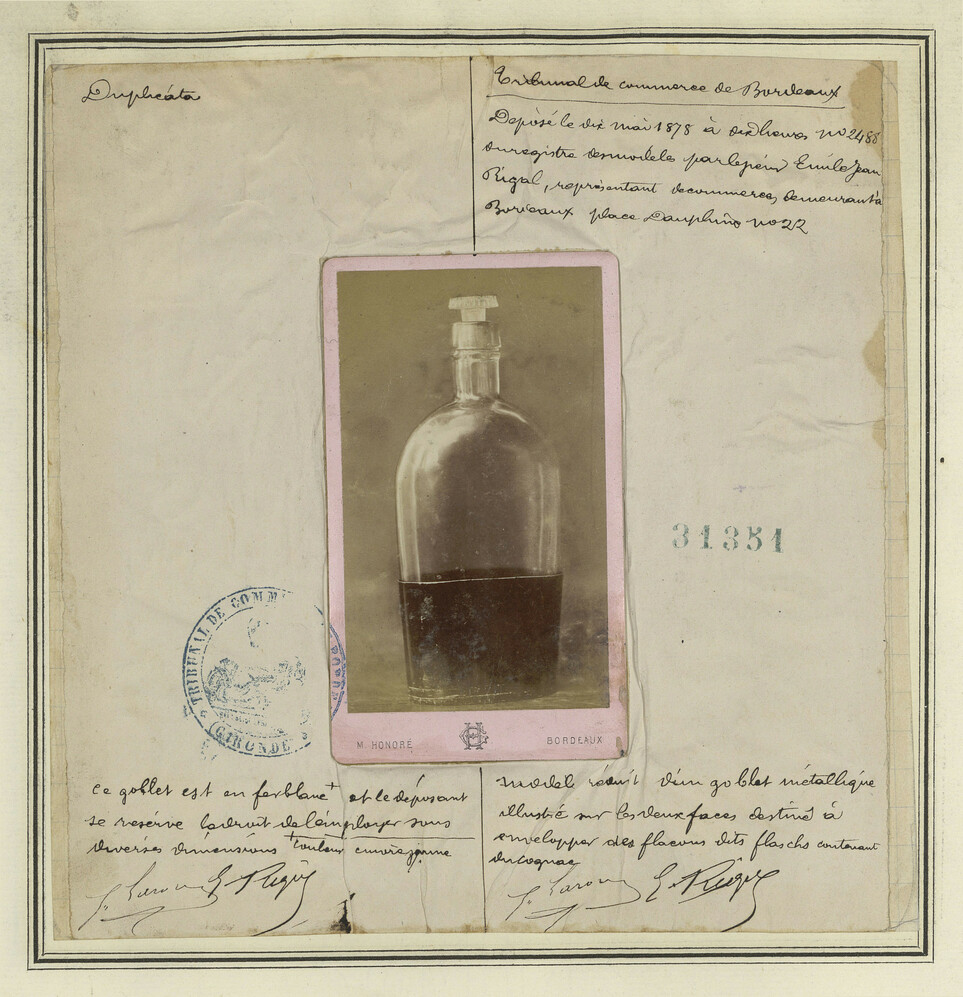 Duplicáta
Tribunal de commerce de Bordeaux
Déposé le dix mai 1878 à dix heures no 2488
du registre des modeles par le sieur Emile Jean
Rigal, représentant de commerce, demeurant à
Bordeaux place Dauphine no 22
31351
TRIBUNAL DE COMM
GIRONDE
M. HONORÉ
BORDEAUX
ce goblet est en ferblanc + et le déposant
se reserve le droit de l'employer sous
diverses dimensions + couleur cuivre jaune
model réduit d'un goblet métallique
illustré sur les deux faces destiné à
envelopper des flacons dits flaschs contenant
du cognac